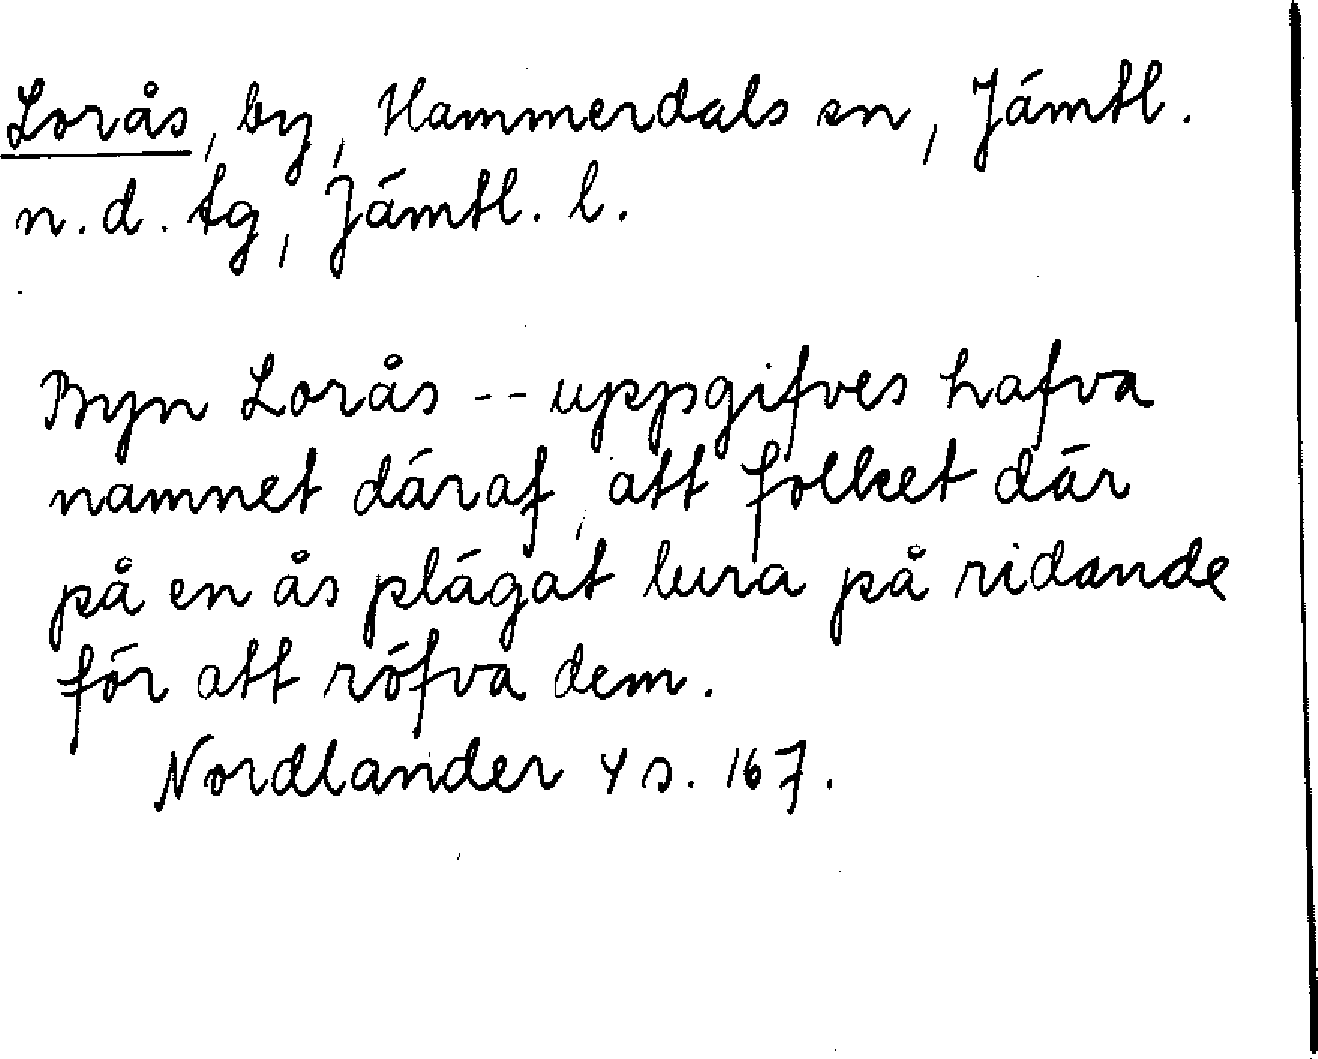 Lorås, by, Hammerdals sn, Jämtl.
n. d. tg, Jämtl. l.
Byn Lorås -- uppgifves hafva
namnet däraf, att folket där
på en ås plägat lura på ridande
för att röfva dem.
Nordlander 4 s. 167.